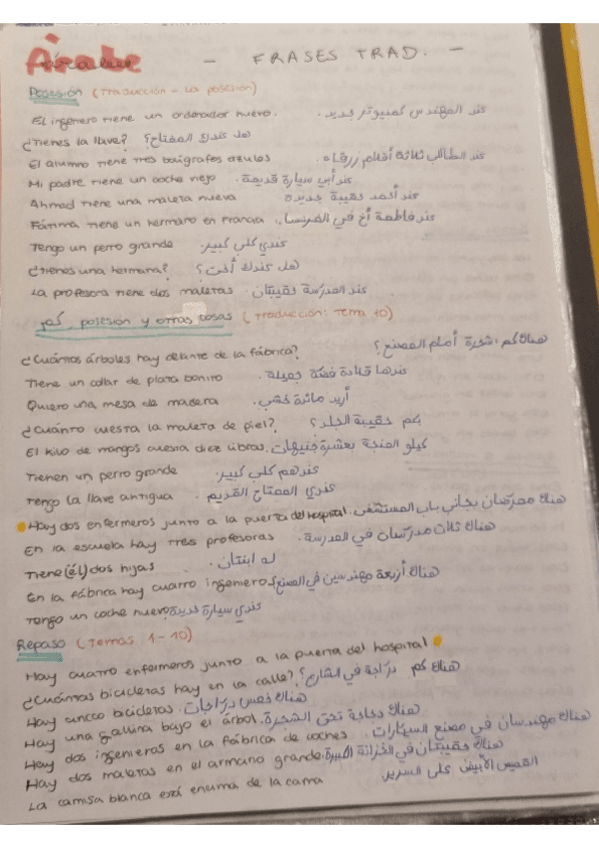 Árabe - FRASES TRAD. -
Posesión (Traducción - La posesión)
El ingeniero tiene un ordenador nuevo. عند المهندس كمبيوتر جديد.
¿Tienes la llave? هل عندك المفتاح؟
El alumno tiene tres bolígrafos azules عند الطالب ثلاثة أقلام زرقاء.
Mi padre tiene un coche viejo عند أبي سيارة قديمة.
Ahmad tiene una maleta nueva عند أحمد حقيبة جديدة
Fátima tiene un hermano en Francia. عند فاطمة أخ في الفرنسا.
Tengo un perro grande عندي كلب كبير.
¿Tienes una hermana? هل عندك أخت؟
La profesora tiene dos maletas عند المدرسة حقيبتان.
كم, posesión y otras cosas (Traducción: Tema 10)
¿Cuántos árboles hay delante de la fábrica? هناك كم شجرة أمام المصنع؟
Tiene un collar de plata bonito عندها قلادة فضة جميلة.
Quiero una mesa de madera أريد مائدة خشب.
¿Cuánto cuesta la maleta de piel? بكم حقيبة الجلد؟
El kilo de mangos cuesta diez libras. كيلو المنجة بعشرة جنيهات.
Tienen un perro grande عندهم كلب كبير.
Tengo la llave antigua عندي المفتاح القديم.
Hay dos enfermeros junto a la puerta del hospital. هناك ممرضان بجانب باب المستشفى.
En la escuela hay tres profesoras هناك ثلاث مدرسات في المدرسة.
Tiene (él) dos hijas له ابنتان.
En la fábrica hay cuatro ingenieros هناك أربعة مهندسين في المصنع.
Tengo un coche nuevo عندي سيارة جديدة
Repaso (Temas 1-10)
Hay cuatro enfermeros junto a la puerta del hospital
¿Cuántas bicicletas hay en la calle? هناك كم دراجة في الشارع؟
Hay cinco bicicletas. هناك خمس دراجات.
Hay una gallina bajo el árbol. هناك دجاجة تحت الشجرة.
Hay dos ingenieros en la fábrica de coches هناك مهندسان في مصنع السيارات.
Hay dos maletas en el armario grande. هناك حقيبتان في الخزانة الكبيرة.
La camisa blanca está encima de la cama القميص الأبيض على السرير